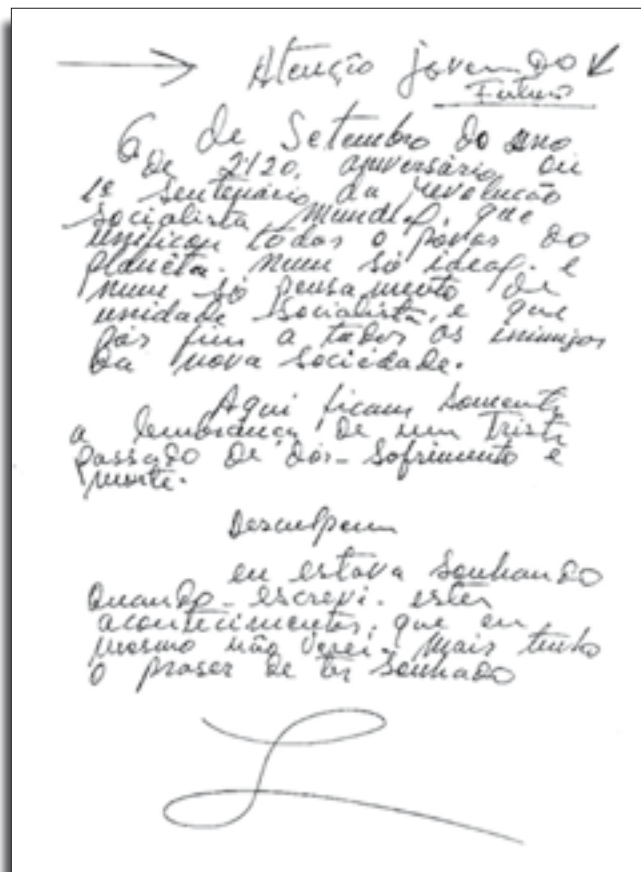 Atenção jovem do
Futuro
6 de Setembro do ano
de 2120, aniversário ou
1º Sentenário da revolução
Socialista Mundial, que
unificou todas o povos do
planêta. Num só ideal. e
num só pensamento de
unidade socialista, e que
pôs fim a todos os inimigos
da nova sociedade.
Aqui ficam somente
a lembrança de um triste
passado de dôr- sofrimento e
morte.
Desculpem
eu estava sonhando
quando- escrevi. estes
acontecimentos, que eu
mesmo não verei. Mais tenho
o praser de ter sonhado